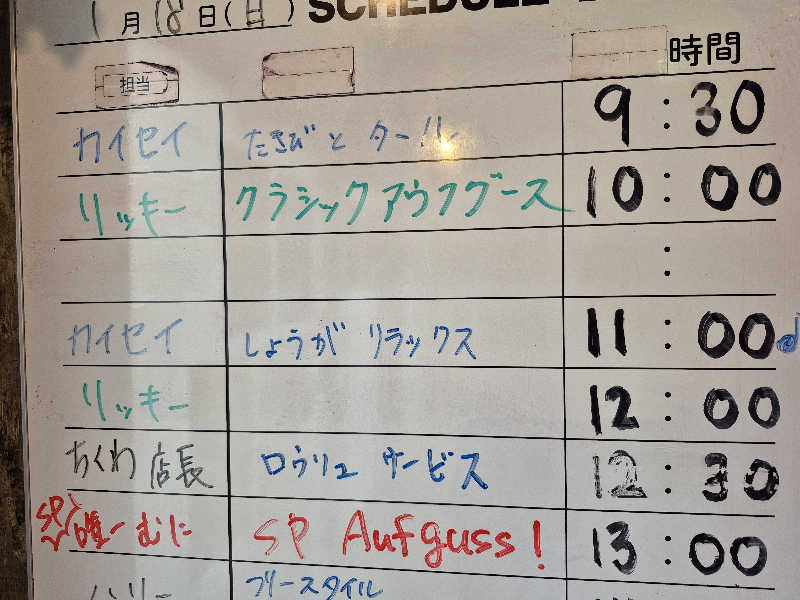 1月18日(日) SCHEDULE
担当 時間
カイセイ たきびと タール 9:30
リッキー クラシックアウフグース 10:00
:
カイセイ しょうが リラックス 11:00
リッキー 12:00
ちくわ店長 ロウリュ サービス 12:30
SP 唯一むに SP Aufguss! 13:00
ブリースタイル